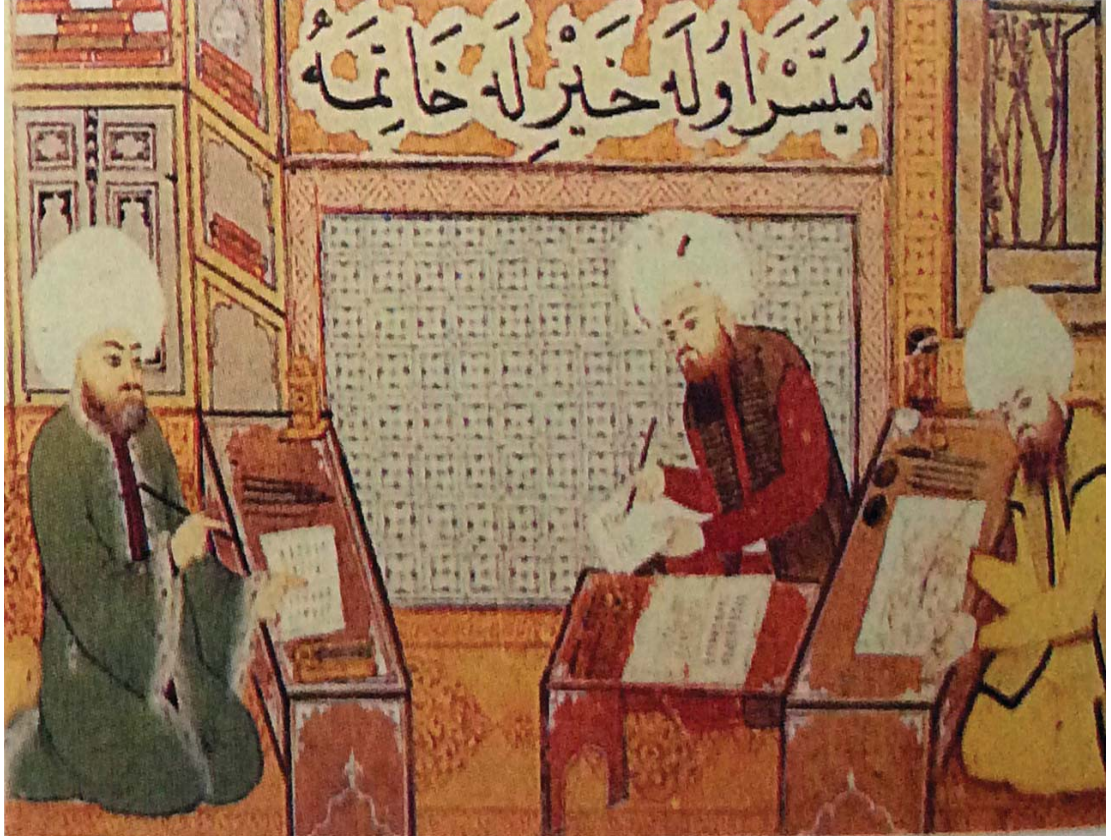 مُيَسَّرْ اوُلَه خَيْرِ لَه خَاتِمَهُ